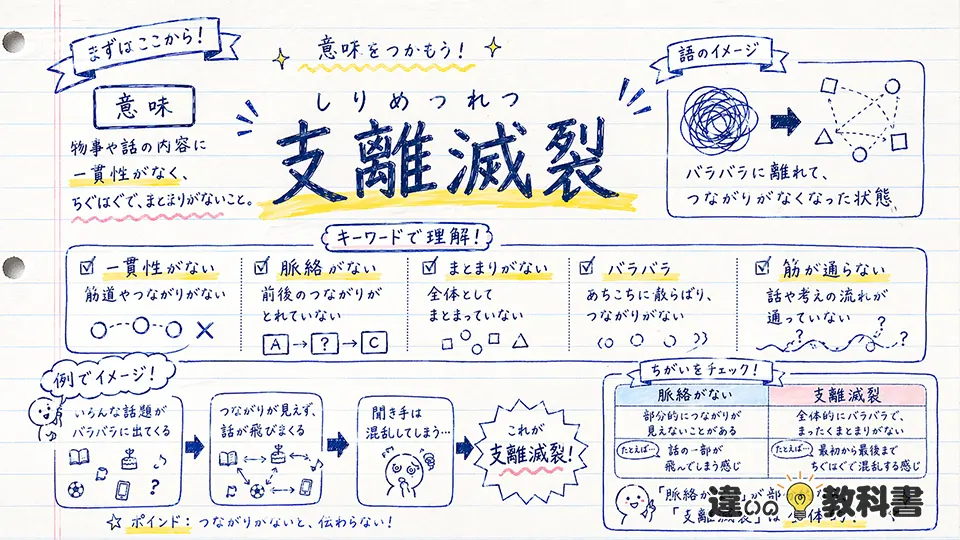 まずはここから!
意味をつかもう!
意味
物事や話の内容に
一貫性がなく、
ちぐはぐで、まとまりがないこと。
しりめつれつ
支離滅裂
語のイメージ
バラバラに離れて、
つながりがなくなった状態
キーワードで理解!
一貫性がない
筋道やつながりがない
脈絡がない
前後のつながりが
とれていない
A → ? → C
まとまりがない
全体として
まとまっていない
バラバラ
あちこちに散らばり、
つながりがない
筋が通らない
話や考えの流れが
通っていない
? ?
例でイメージ!
いろんな話題が
バラバラに出てくる
?
つながりが見えず、
話が飛びまくる
聞き手は
混乱してしまう…
これが
支離滅裂!
☆ ポイント: つながりがないと、伝わらない!
ちがいをチェック!
脈絡がない
支離滅裂
部分的につながりが
見えないことがある
全体的にバラバラで、
まったくまとまりがない
たとえば… 話の一部が
飛んでしまう感じ
たとえば… 最初から最後まで
ちぐはぐで混乱する感じ
「脈絡が
「支離滅裂」は
違いの教科書